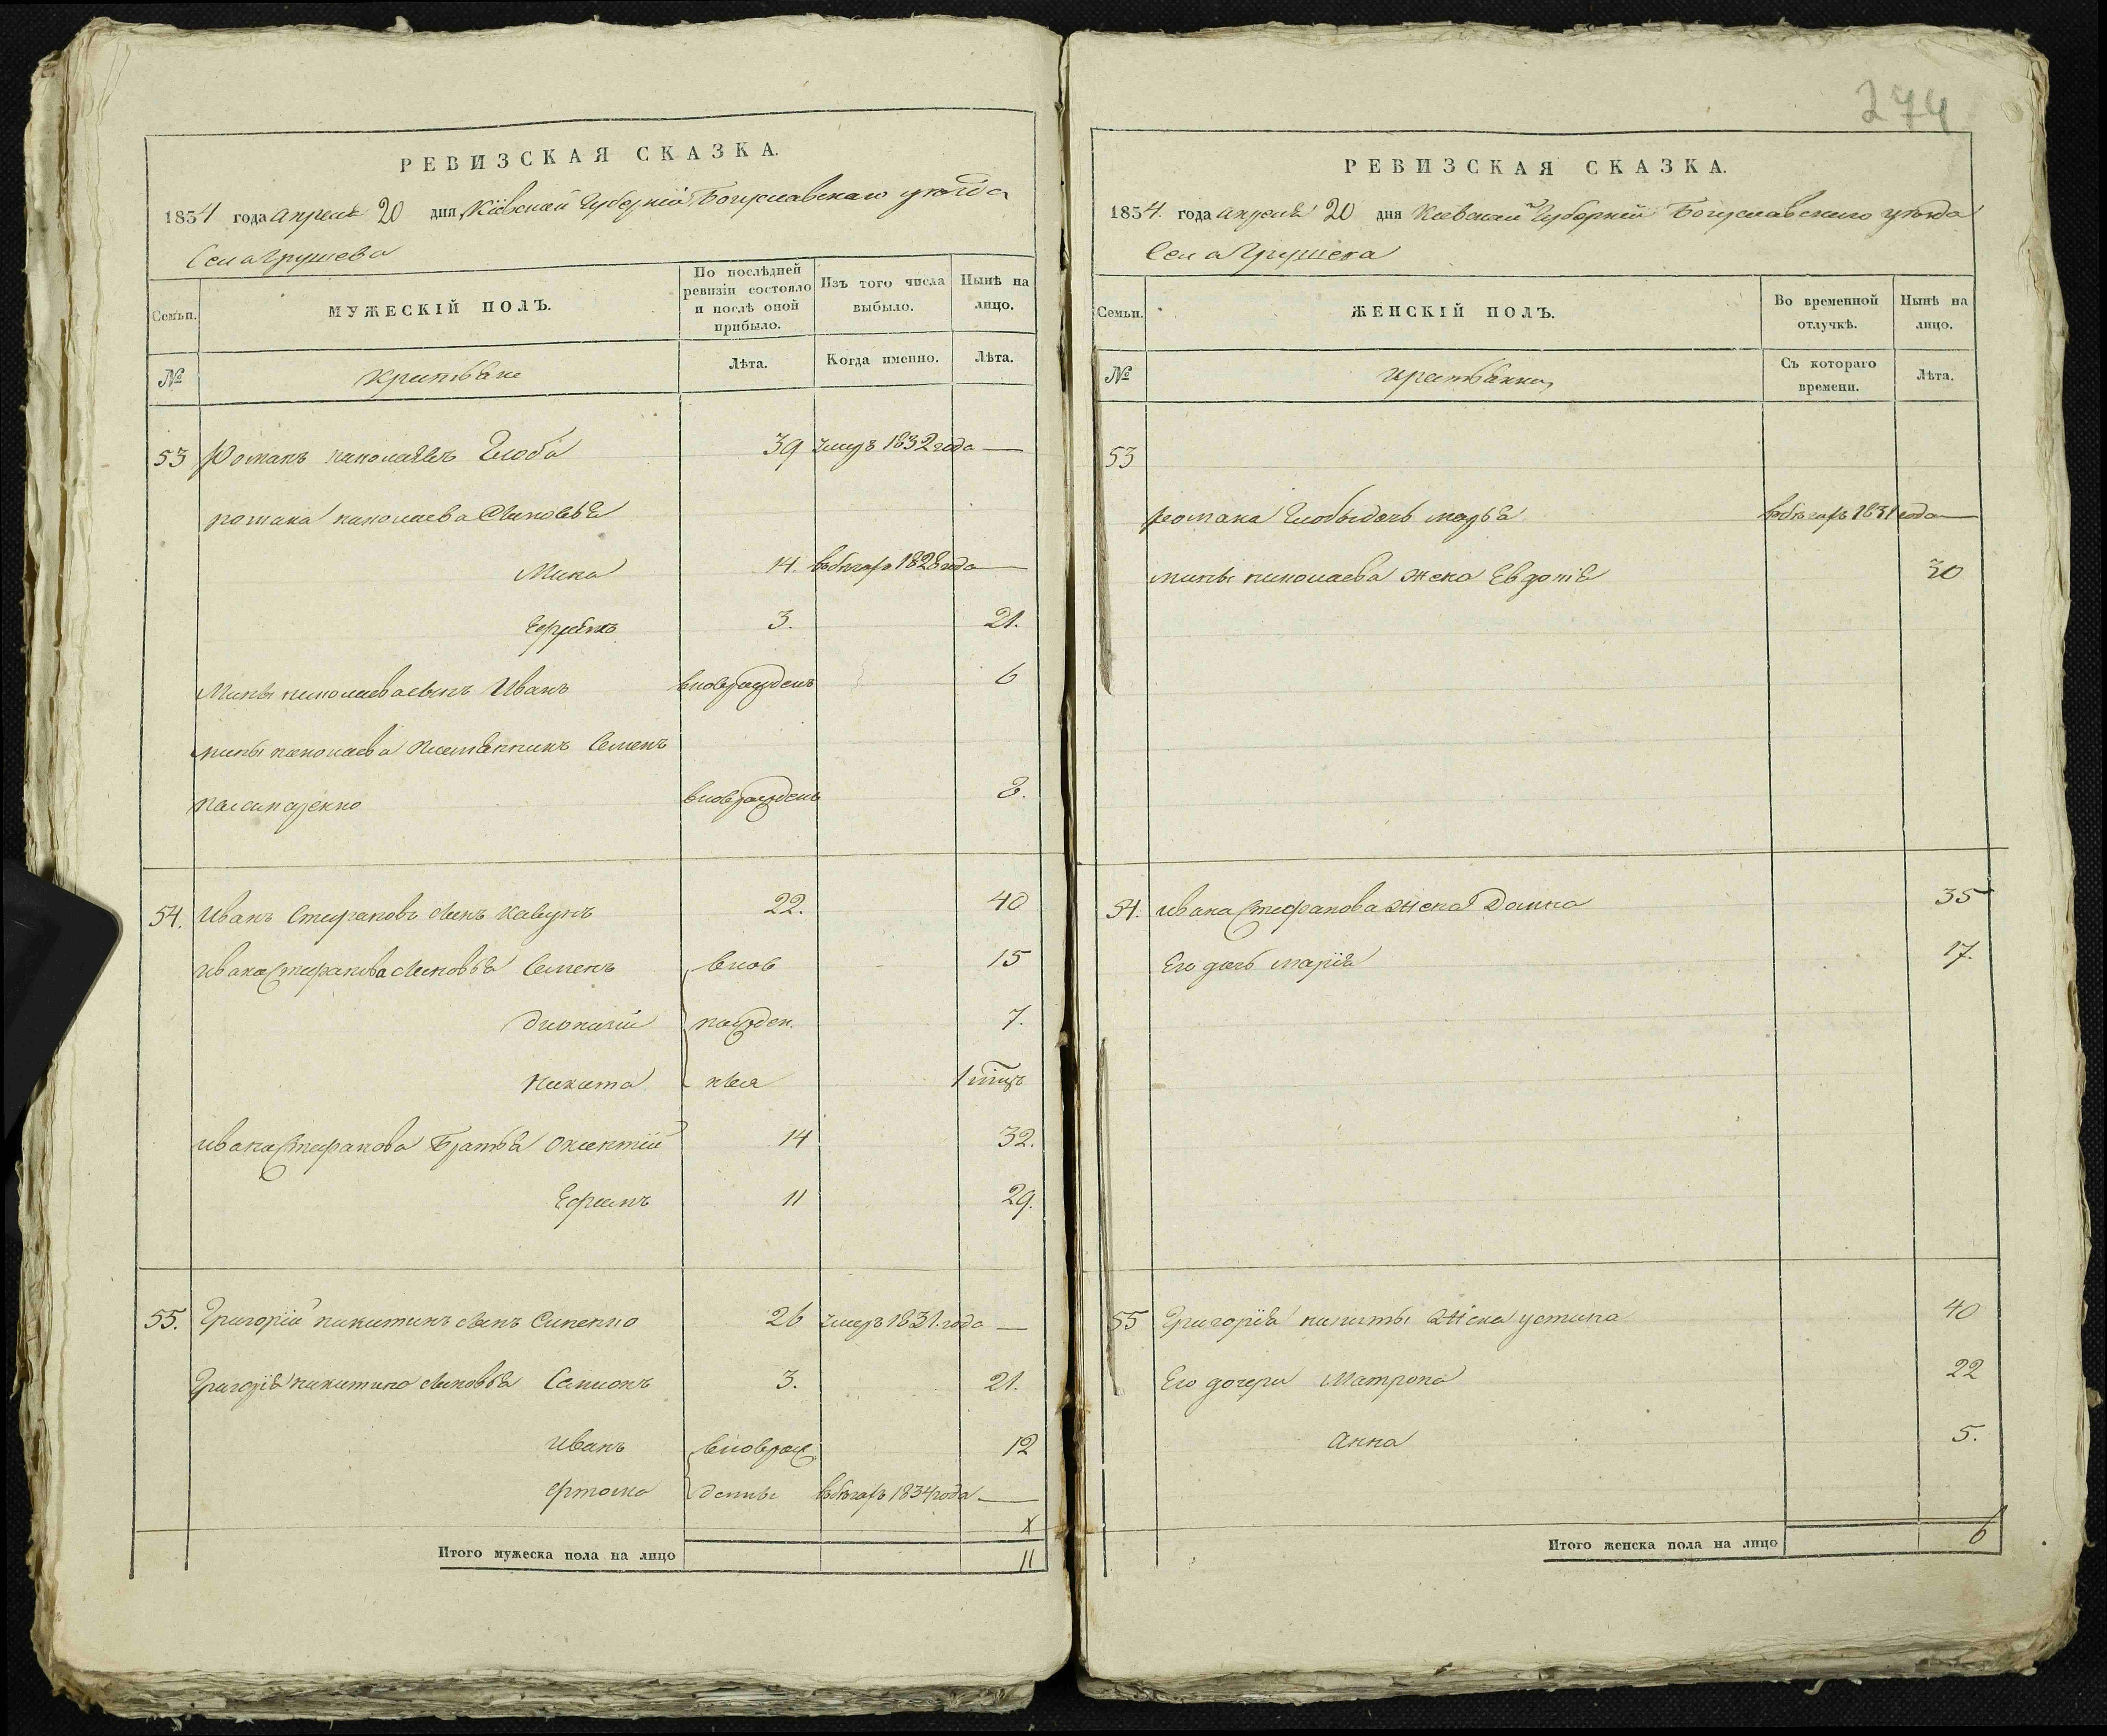 274
РЕВИЗСКАЯ СКАЗКА.
1834 года апреля 20 дня, Кіевской Губерніи Богуславскаго уезда
Села Грушева
Семьи.
МУЖЕСКІЙ ПОЛЪ.
По послѣдней ревизіи состояло и послѣ оной прибыло.
Изъ того числа выбыло.
Нынѣ на лицо.
№
Крестьяне
Лѣта.
Когда именно.
Лѣта.
53 Романъ николаевъ Глоба 39 умеръ 1832 года —
романа николаева сыновья
Мина 14. въ бегах 1828 года —
Ефремъ 3. 21.
Мины николаева сынъ Иванъ вновь рожденъ 6
мины николаева племянникъ Семенъ
вновь рожденъ 8.
54. Иванъ Стефановъ сынъ Кавунъ 22. 40
ивана Стефанова сыновья Семенъ внов 15
Дионизій рожден. 7.
Никита ные 1
ивана Стефанова Братья 14 32.
Ефимъ 11 29.
55. Григорій никитинъ сынъ Синенко 26 умеръ 1831 года —
Григорія никитина сыновья Самионъ 3. 21.
Иванъ вновь рож 12
денны въ бегах 1834 года —
х
Итого мужеска пола на лицо 11
РЕВИЗСКАЯ СКАЗКА.
1834. года апреля 20 дня Кіевской Губерніи Богуславскаго уезда
Села Грушева
Семьи.
ЖЕНСКІЙ ПОЛЪ.
Во временной отлучкѣ.
Нынѣ на лицо.
№
крестьянки
Съ котораго времени.
Лѣта.
53
романа Глобы дочь марья въ бегах 1831 года —
мины николаева жена Евдокія 30
54. ивана Стефанова жена Домна 35
Его дочь марія 17.
55 Григорія никиты жена устина 40
Его дочери Матрона 22
анна 5.
Итого женска пола на лицо 6